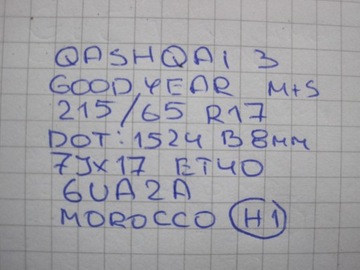 QASHQAI 3
GOOD YEAR M+S
215/65 R17
DOT: 1524 B 8mm
7Jx17 ET40
6UA2A
MOROCCO H1